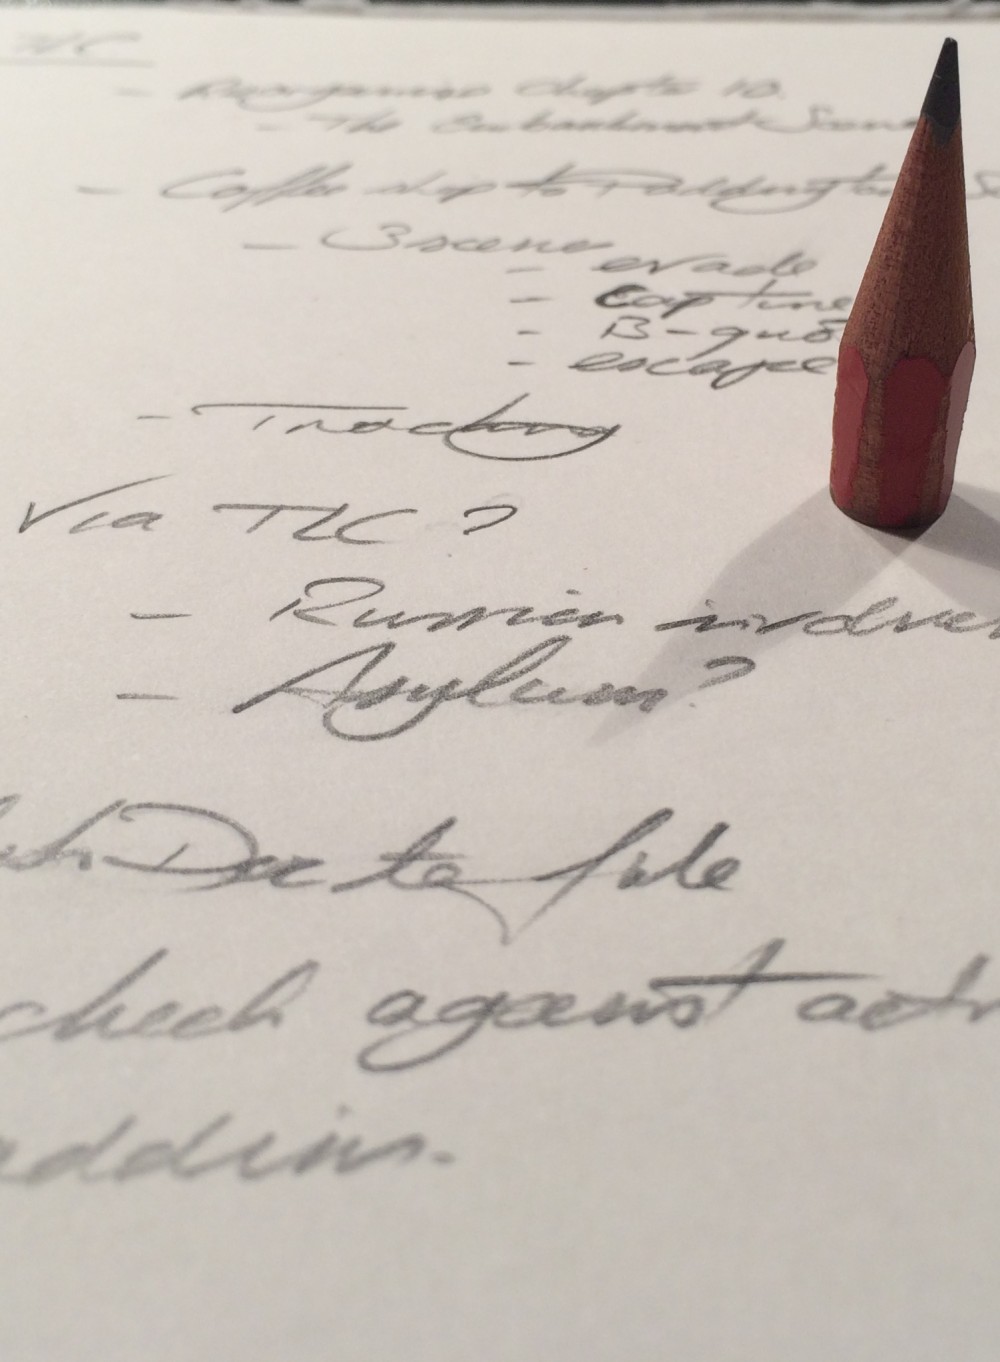 TLC
- Reorganise Chapter 10.
- The Embankment Scene
- Coffee shop to Paddington
- 3 scene
- evade
- capture
- B-
- escape
- Tracking
Via TLC?
- Russian involve
- Asylum?
Date file
check against
addins.